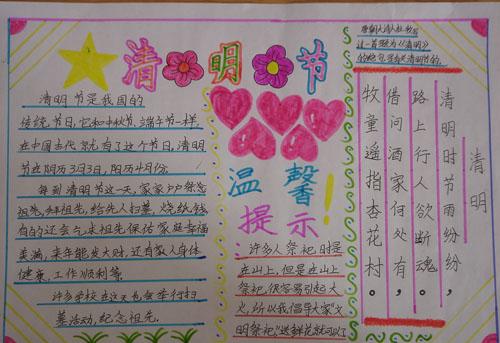 清明节
清明节是我国的
传统节日,它和中秋节、端午节一样
在中国古代就有了这个节日,清明
节在阴历3月3日,阳历4月份.
每到清明节这一天,家家户户
祖先,拜祖先,给先人扫墓,烧纸钱
有的还会乞求祖先保佑家庭幸福
美满,来年能发大财,还有家人身体
健康,工作顺利等.
许多学校在这天也会举行扫
墓活动,纪念祖先.
温馨
提示!
许多人祭祀时是
在山上,但是在山上
祭祀,很容易引起火
灾,所以我倡导大家"文
明祭祀"送鲜花就可以了
大诗人杜牧写
过一首题为《清明》
的绝句,是有关清明节的.
清明
清明时节雨纷纷,
路上行人欲断魂。
借问酒家何处有,
牧童遥指杏花村。